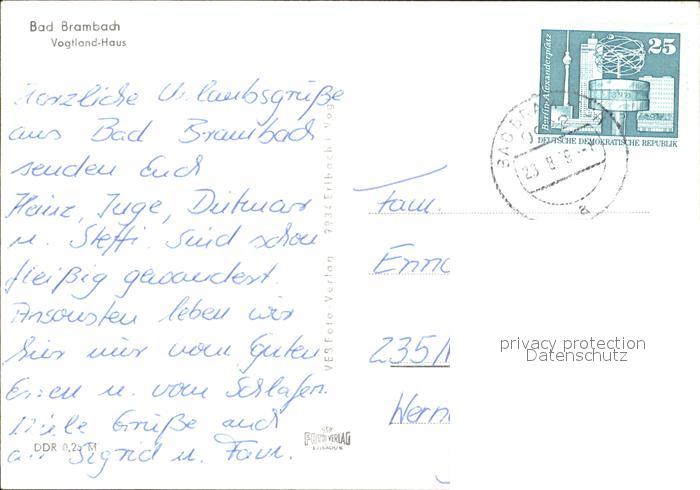 Bad Brambach
Vogtland-Haus
Herzliche Urlaubsgrüße
aus Bad Brambach
senden Euch
Heinz, Inge, Dietmar
u. Steffi. Sind schon
fleißig gewandert.
Ansonsten leben wir
hier nur vom Guten
Essen u. vom Schlafen.
Viele Grüße auch
an Sigrid u. Fam.
DDR 0,25 M
VEB Foto-Verlag 9934 Erlbach i. Vogtl
FOTO VERLAG
ERLBACH
25
Berlin-Alexanderplatz
DEUTSCHE DEMOKRATISCHE REPUBLIK
BAD BRA
23.8.
a
Fam.
235/
Wern
privacy protection
Datenschutz